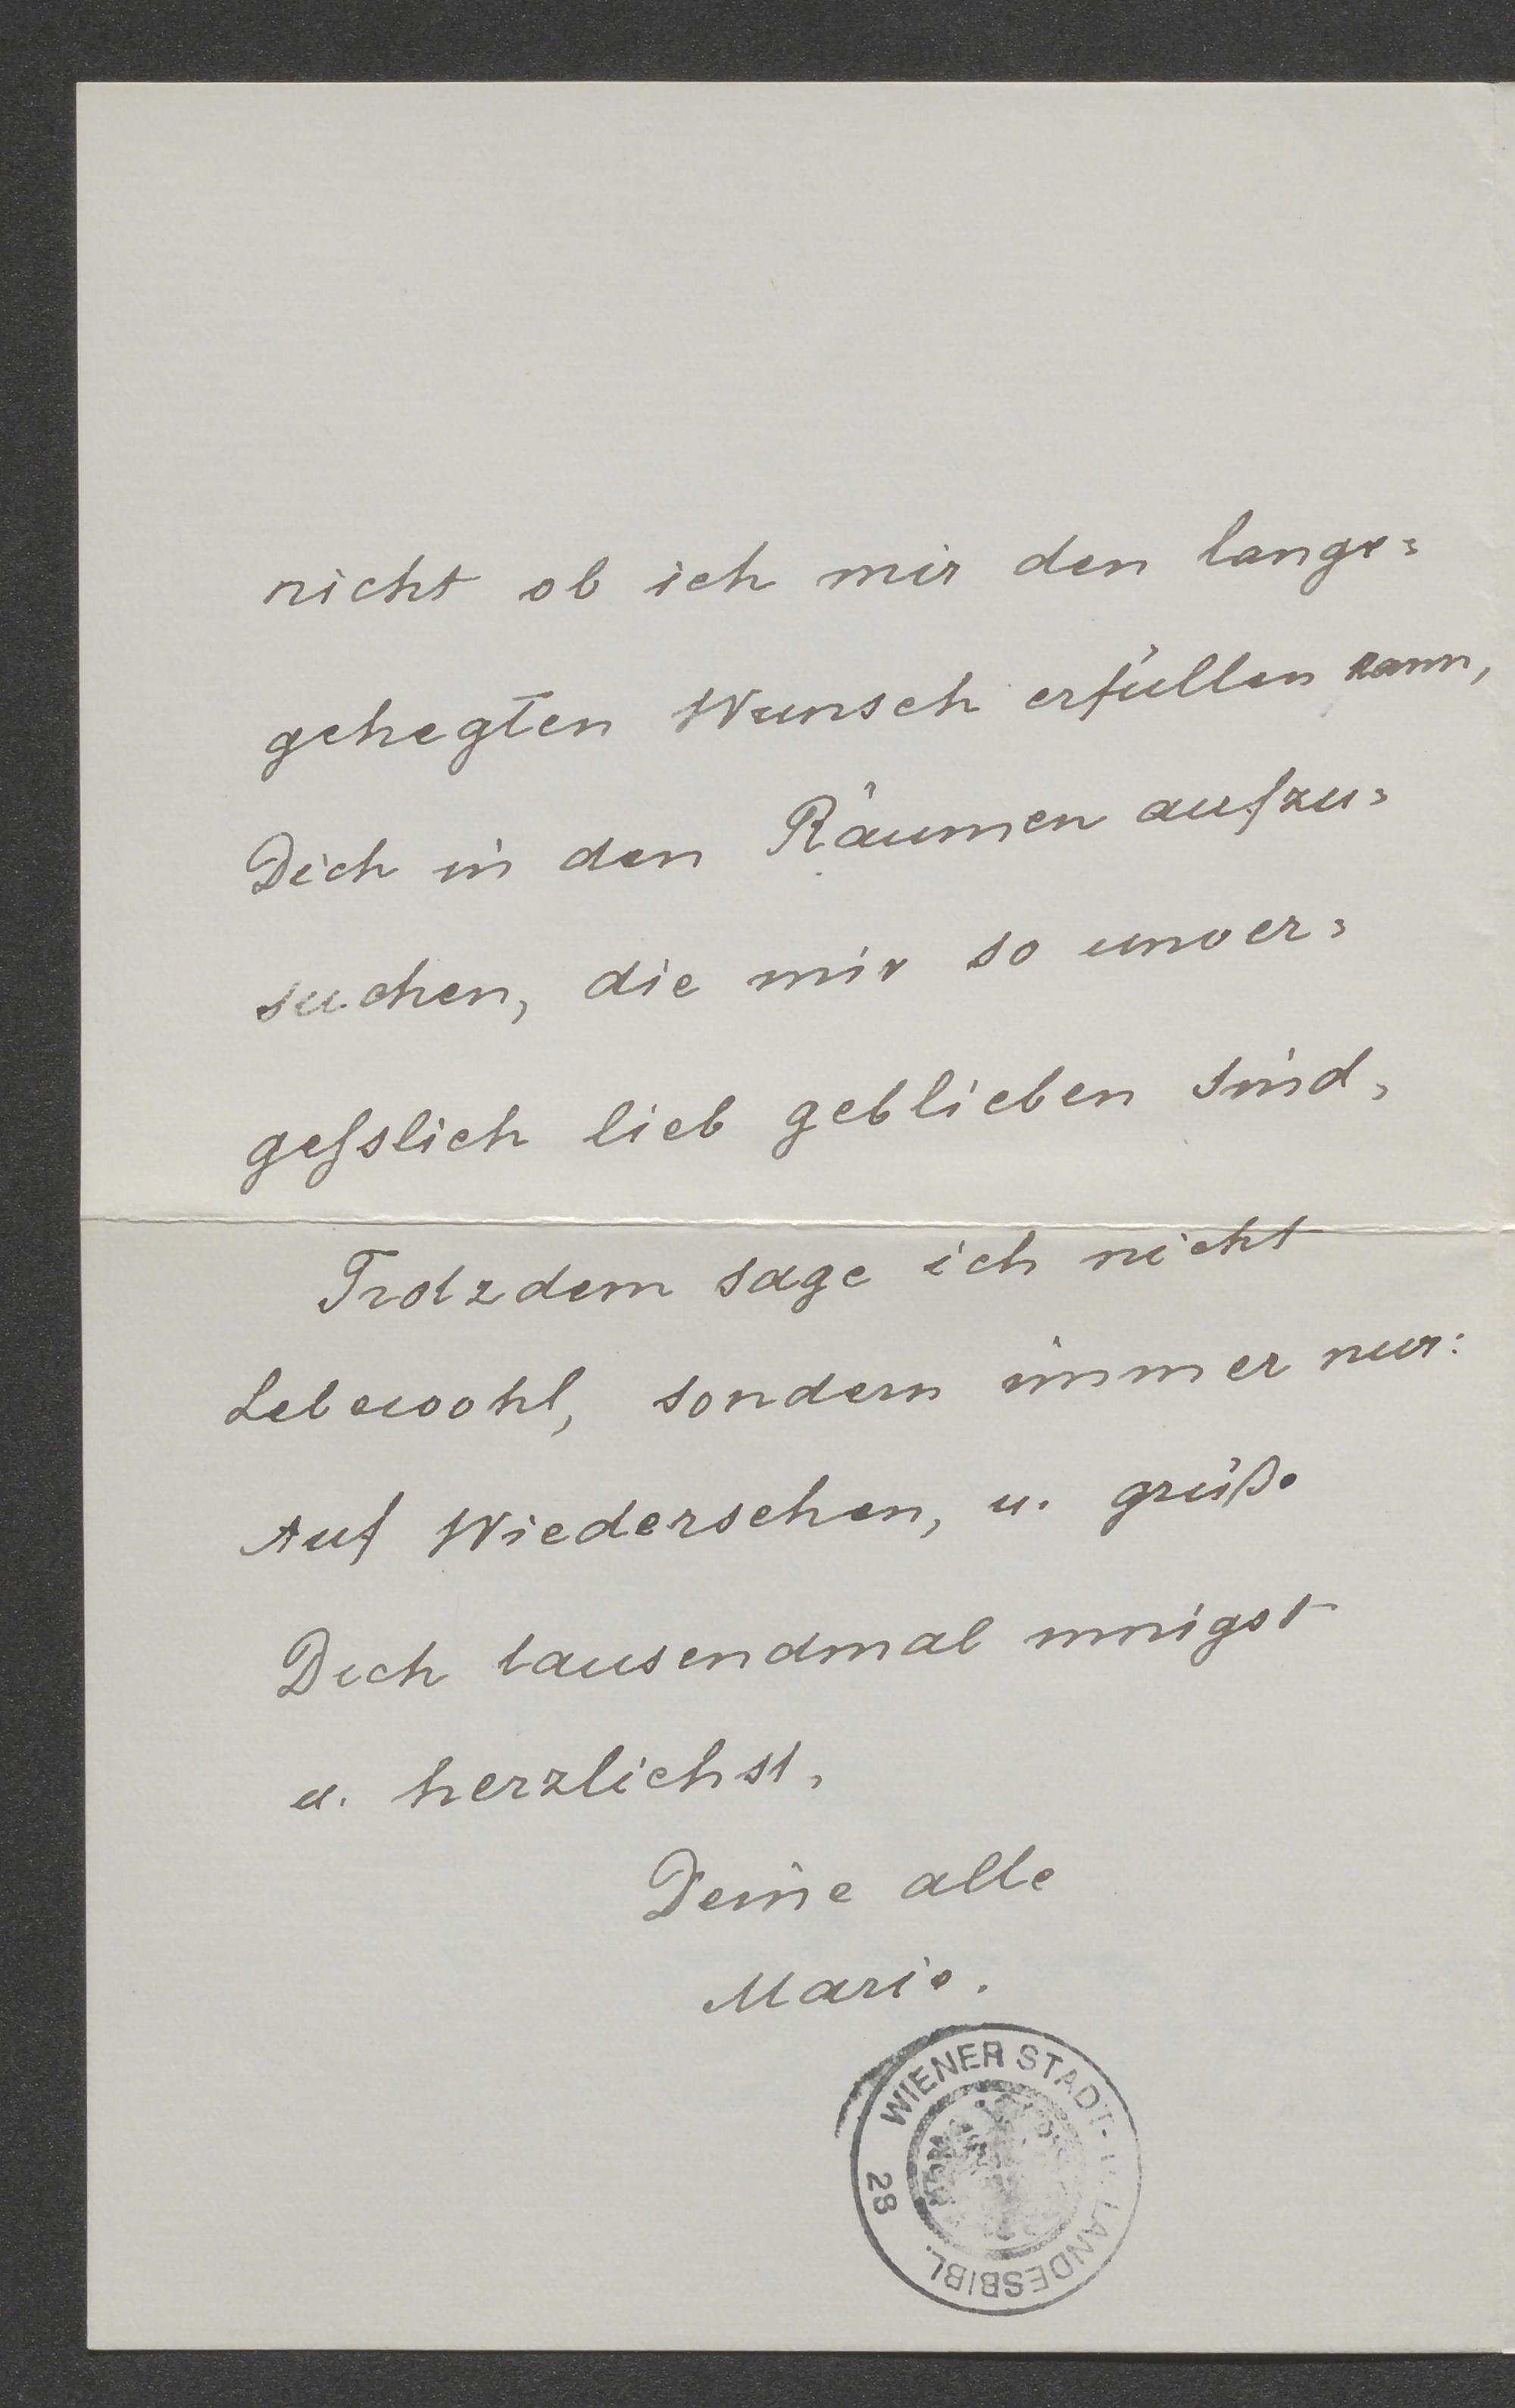 nicht ob ich mir den lange=
gehegten Wunsch erfüllen kann,
Dich in den Räumen aufzu=
suchen, die mir so unver=
gesslich lieb geblieben sind,
Trotzdem sage ich nicht
Lebewohl, sondern immer nur:
Auf Wiedersehen, u. grüße
Dich tausendmal innigst
u. herzlichst,
Deine alte
Marie.
WIENER STADT- U. LANDESBIBL.
28